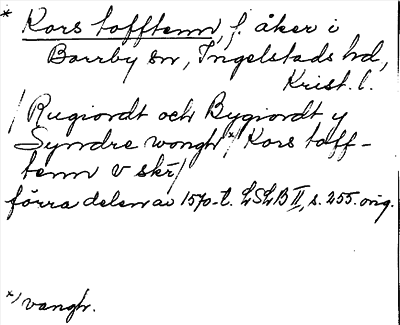 * Kors tofftenn, f. åker i
Borrby sn, Ingelstads hd,
Krist. l.
/ Rugiordt och Bygiordt y
Syndre wongh *) / Kors toff-
tenn v skr /
förra delen av 1570-t. LSLB II, s. 255. orig.
*) vangh.